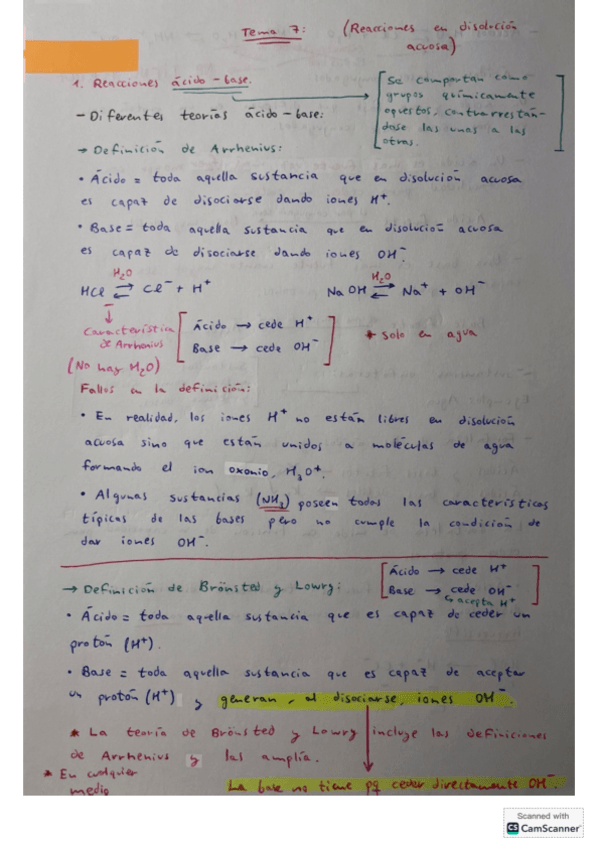 Tema 7: (Reacciones en disolución
acuosa)
1. Reacciones ácido-base.
Se comportan como
grupos químicamente
opuestos, contrarrestán-
dose las unas a las
otras.
- Diferentes teorías ácido-base:
→ Definición de Arrhenius:
• Ácido = toda aquella sustancia que en disolución acuosa
es capaz de disociarse dando iones H⁺.
• Base = toda aquella sustancia que en disolución acuosa
es capaz de disociarse dando iones OH⁻.
HCl ⇌ Cl⁻ + H⁺ NaOH ⇌ Na⁺ + OH⁻
H₂O H₂O
↓
Característica
de Arrhenius
Ácido → cede H⁺
Base → cede OH⁻
* Solo en agua
(No hay H₂O)
Fallos en la definición:
• En realidad, los iones H⁺ no están libres en disolución
acuosa sino que están unidos a moléculas de agua
formando el ion oxonio, H₃O⁺.
• Algunas sustancias (NH₃) poseen todas las características
típicas de las bases pero no cumple la condición de
dar iones OH⁻.
→ Definición de Brönsted y Lowry:
Ácido → cede H⁺
Base → cede OH⁻
↳ acepta H⁺
• Ácido = toda aquella sustancia que es capaz de ceder un
protón (H⁺).
• Base = toda aquella sustancia que es capaz de aceptar
un protón (H⁺) y generan, al disociarse, iones OH⁻.
* La teoría de Brönsted y Lowry incluye las definiciones
de Arrhenius y las amplía.
* En cualquier
medio
La base no tiene pq ceder directamente OH⁻.
Scanned with
CS CamScanner